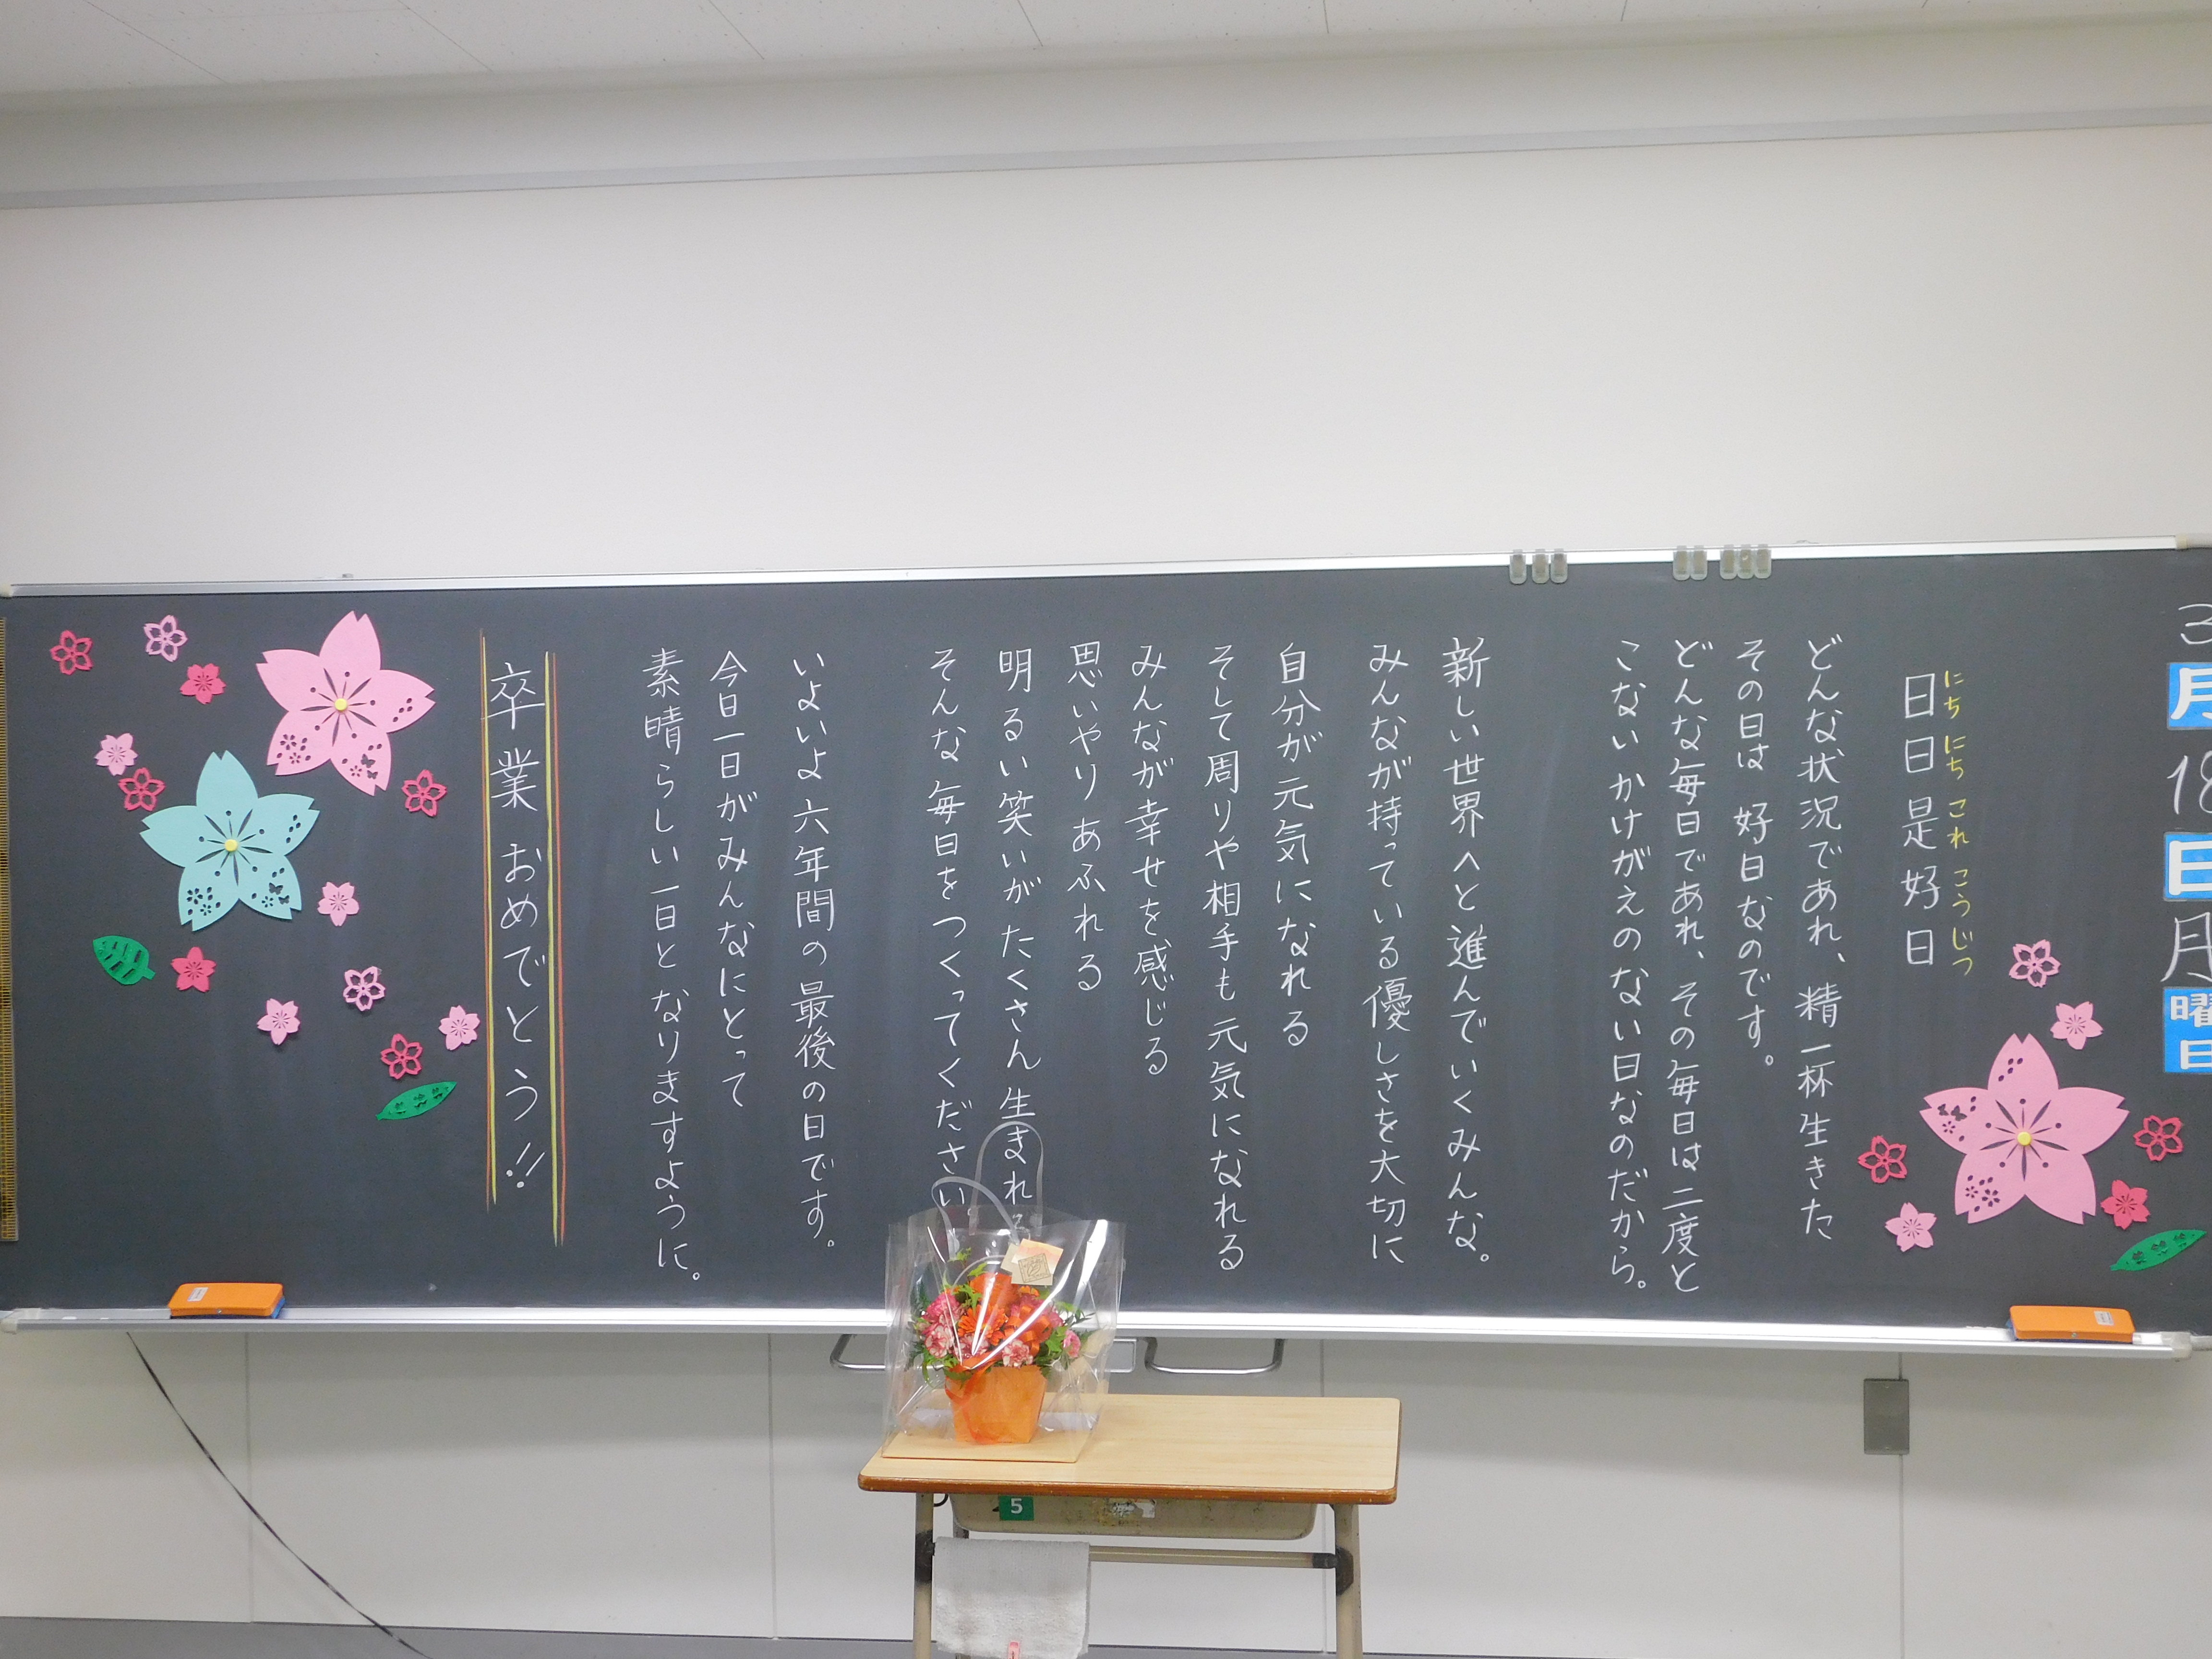 3月18日月曜日
にちにちこれこうじつ
日日是好日
どんな状況であれ、精一杯生きた
その日は 好日なのです。
どんな毎日であれ、その毎日は二度と
こないかけがえのない日なのだから。
新しい世界へと進んでいくみんな。
みんなが持っている優しさを大切に
自分が元気になれる
そして周りや相手も元気になれる
みんなが幸せを感じる
思いやりあふれる
明るい笑いが たくさん 生まれる
そんな毎日をつくってください
いよいよ六年間の最後の日です。
今日一日がみんなにとって
素晴らしい一日となりますように。
卒業おめでとう!!
5